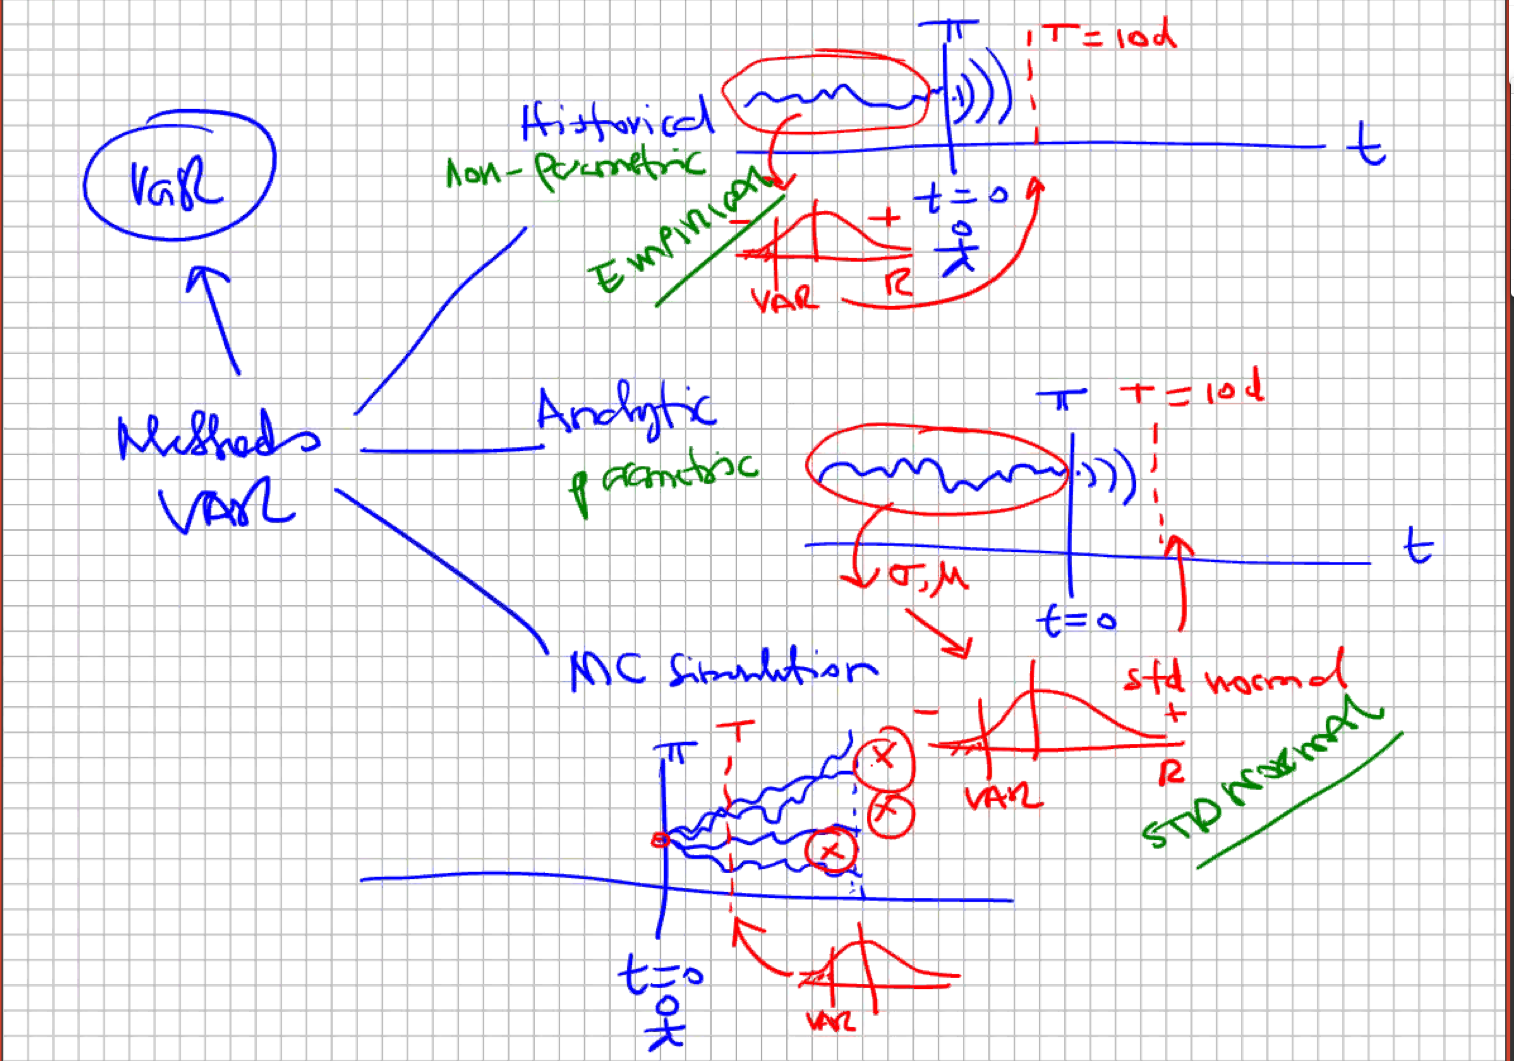 VaR
Methods
VAR
Historical
non-parametric
EMPIRICAL
π
T = 10d
t
t = 0
-
+
VAR
R
Analytic
parametric
π
T = 10d
t
σ, μ
t = 0
std normal
-
+
VAR
R
STD NORMAL
MC Simulation
π
T
x
x
x
t = 0
VAR